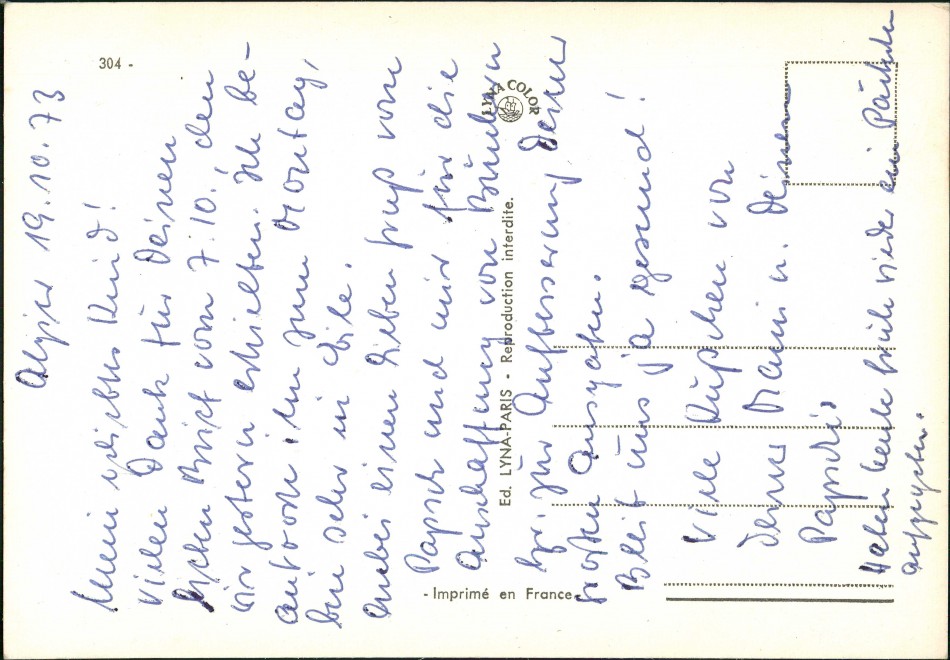 Algier 19.10.73
Mein geliebtes Kind!
Vielen Dank für Deinen
lieben Brief vom 7.10., den
wir gestern erhielten. Ich be-
antworte ihn zum Montag,
bin sehr in Eile.
Anbei einen lieben Gruß vom
Papschi und mir für die
Anschaffung von Büchern
bzw. zur Aufbesserung Deiner
großen Ausgaben.
Bleib uns ja gesund!
Viele Küßchen von
Deiner Mami u. Deinem
Papschi
Haben heute früh wieder ein Päckchen
aufgegeben.
304 -
LYNA COLOR
Ed. LYNA-PARIS - Reproduction interdite.
- Imprimé en France -